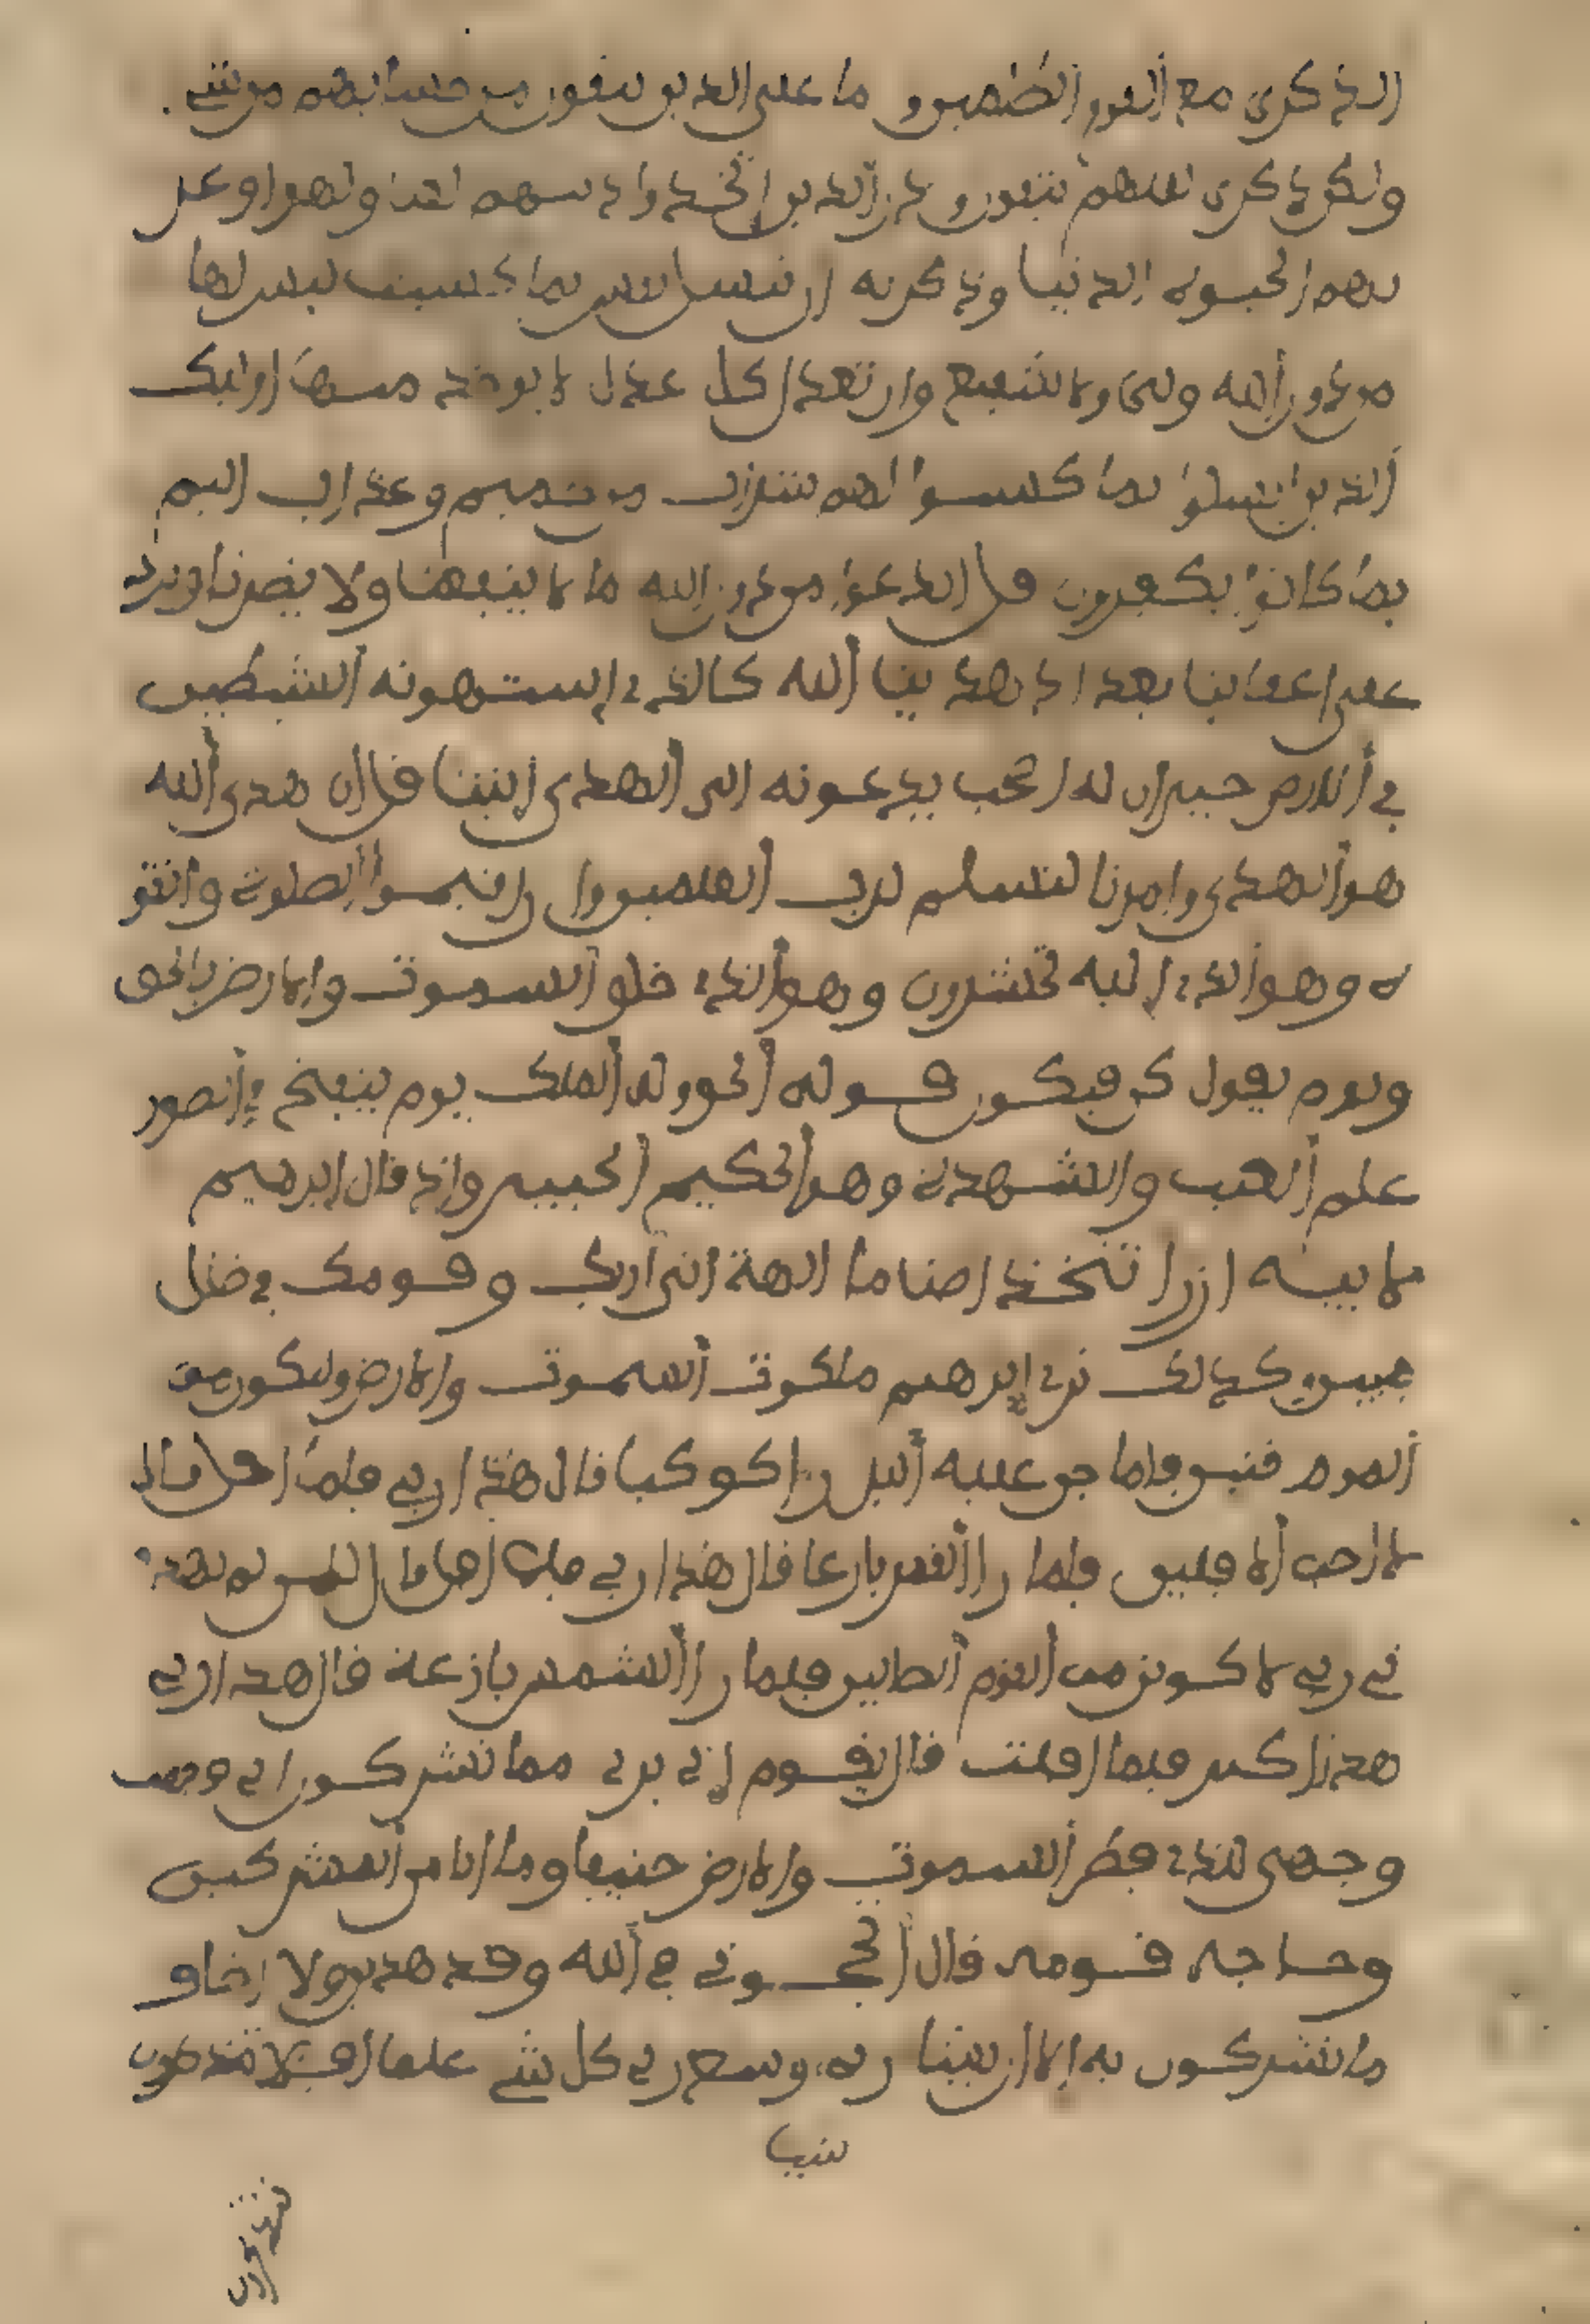 الذكرى مع القوم الظلمين وما على الذين يتقون من حسابهم من شيء
ولكن ذكرى لعلهم يتقون وذر الذين اتخذوا دينهم لعبا ولهوا وغر
تهم الحيوة الدنيا وذكر به ان تبسل نفس بما كسبت ليس لها
من دون الله ولي ولا شفيع وان تعدل كل عدل لا يوخذ منها اوليك
الذين ابسلوا بما كسبوا لهم شراب من حميم وعذاب اليم
بما كانوا يكفرون قل اندعوا من دون الله ما لا ينفعنا ولا يضرنا ونرد
على اعقابنا بعد اذ هدينا الله كالذي استهوته الشيطين
في الارض حيران له اصحب يدعونه الى الهدى ايتنا قل ان هدى الله
هو الهدى وامرنا لنسلم لرب العلمين وان اقيموا الصلوة واتقو
ه وهو الذي اليه تحشرون وهو الذي خلق السموت والارض بالحق
ويوم يقول كن فيكون قوله الحق وله الملك يوم ينفخ في الصور
علم الغيب والشهدة وهو الحكيم الخبير واذ قال ابرهيم
لابيه ازر اتتخذ اصناما الهة اني اريك وقومك في ضلل
مبين كذلك نري ابرهيم ملكوت السموت والارض وليكون من
الموقنين فلما جن عليه اليل را كوكبا قال هذا ربي فلما افل قال
لا احب الافلين فلما را القمر بازغا قال هذا ربي فلما افل قال لين لم يهد
ني ربي لاكونن من القوم الضالين فلما را الشمس بازغة قال هذا ربي
هذا اكبر فلما افلت قال يقوم اني بري مما تشركون اني وجهت
وجهي للذي فطر السموت والارض حنيفا وما انا من المشركين
وحاجه قومه قال اتحجوني في الله وقد هدين ولا اخاف
ما تشركون به الا ان يشا ربي وسع ربي كل شيء علما افلا تتذكرون
شيا